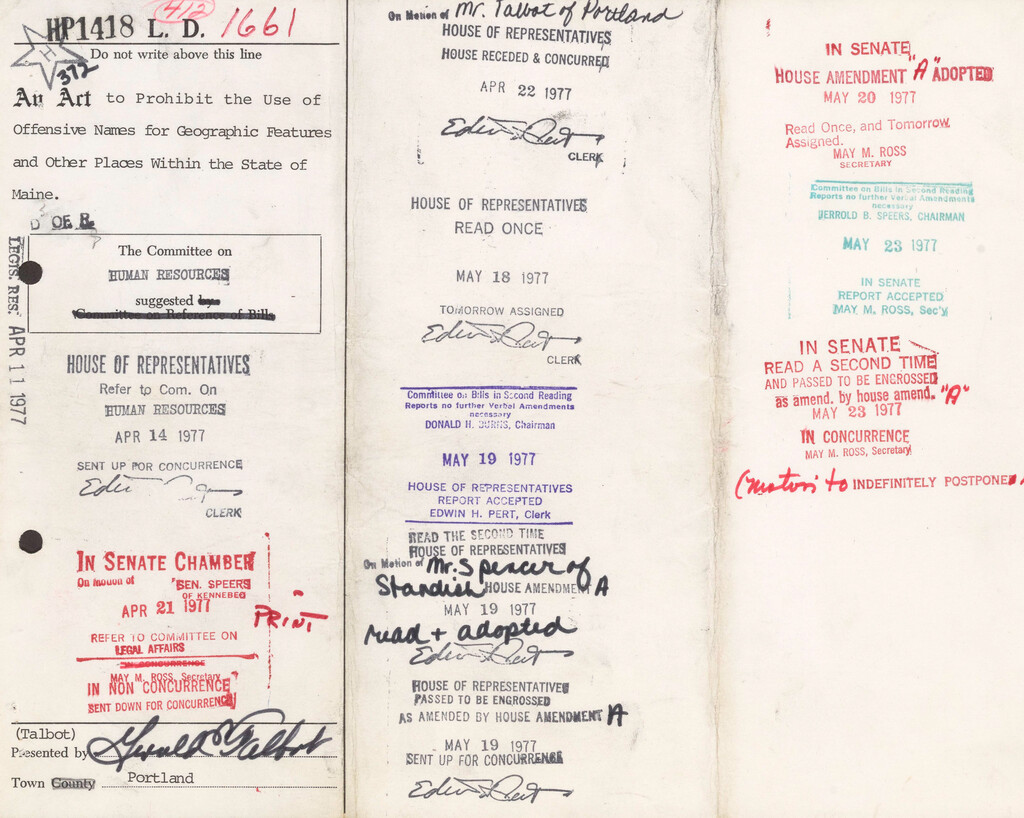 412
HP1418 L. D. 1661
H
Do not write above this line
372
An Act to Prohibit the Use of
Offensive Names for Geographic Features
and Other Places Within the State of
Maine.
D OF R.
LEGIS. RES. APR 11 1977
The Committee on
HUMAN RESOURCES
suggested by
Committee on Reference of Bills
HOUSE OF REPRESENTATIVES
Refer to Com. On
HUMAN RESOURCES
APR 14 1977
SENT UP FOR CONCURRENCE
CLERK
IN SENATE CHAMBER
On Motion of SEN. SPEERS
OF KENNEBEC
APR 21 1977
PRINT
REFER TO COMMITTEE ON
LEGAL AFFAIRS
IN CONCURRENCE
MAY M. ROSS, Secretary
IN NON CONCURRENCE
SENT DOWN FOR CONCURRENCE
(Talbot)
Presented by Gerald Talbot
Town County Portland
On Motion of Mr. Talbot of Portland
HOUSE OF REPRESENTATIVES
HOUSE RECEDED & CONCURRED
APR 22 1977
Edwin H. Pert
CLERK
HOUSE OF REPRESENTATIVES
READ ONCE
MAY 18 1977
TOMORROW ASSIGNED
Edwin H. Pert
CLERK
Committee on Bills in Second Reading
Reports no further Verbal Amendments
necessary
DONALD H. BURNS, Chairman
MAY 19 1977
HOUSE OF REPRESENTATIVES
REPORT ACCEPTED
EDWIN H. PERT, Clerk
READ THE SECOND TIME
HOUSE OF REPRESENTATIVES
On Motion of Mr. Spencer of
Standish HOUSE AMENDMENT A
MAY 19 1977
read + adopted
Edwin H. Pert
HOUSE OF REPRESENTATIVES
PASSED TO BE ENGROSSED
AS AMENDED BY HOUSE AMENDMENT A
MAY 19 1977
SENT UP FOR CONCURRENCE
Edwin H. Pert
IN SENATE
HOUSE AMENDMENT "A" ADOPTED
MAY 20 1977
Read Once, and Tomorrow
Assigned.
MAY M. ROSS
SECRETARY
Committee on Bills in Second Reading
Reports no further Verbal Amendments
necessary
JERROLD B. SPEERS, CHAIRMAN
MAY 23 1977
IN SENATE
REPORT ACCEPTED
MAY M. ROSS, Sec'y
IN SENATE
READ A SECOND TIME
AND PASSED TO BE ENGROSSED
as amend. by house amend. "A"
MAY 23 1977
IN CONCURRENCE
MAY M. ROSS, Secretary
(motion to INDEFINITELY POSTPONE